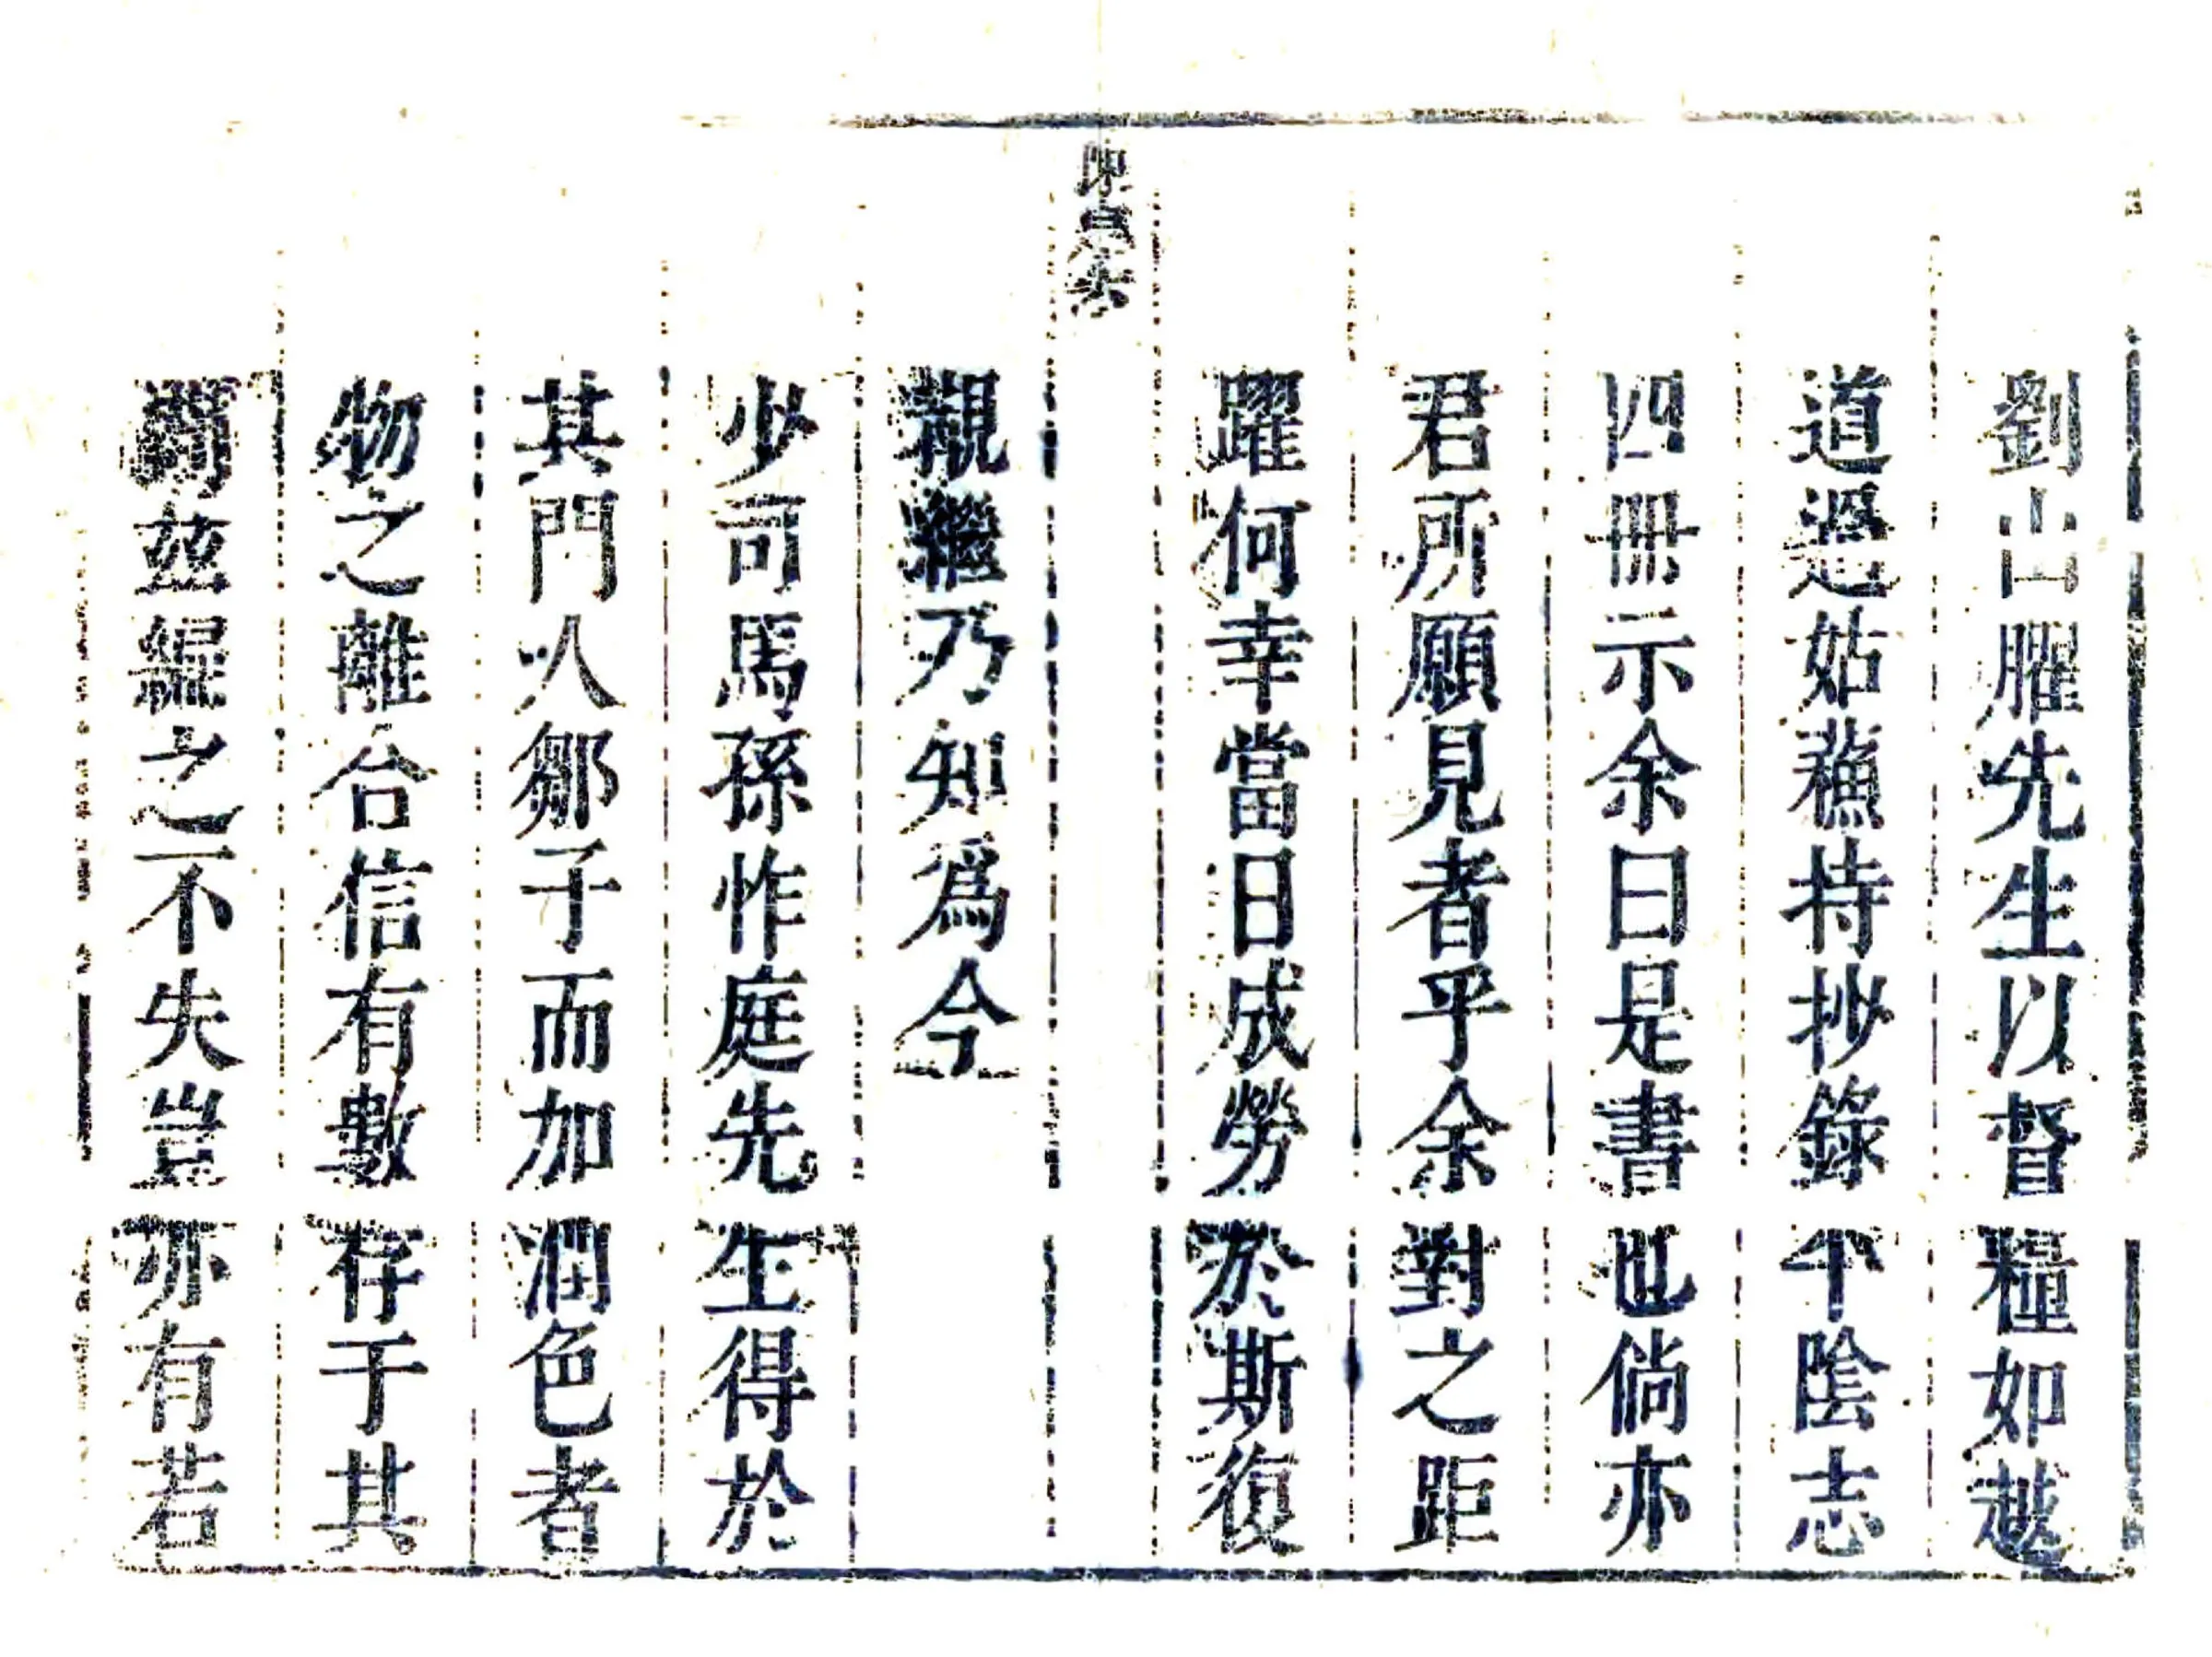 劉山臞先生以督糧如越
道過姑蘇持抄錄平陰志
四冊示余曰是書也倘亦
君所願見者乎余對之距
躍何幸當日成勞於斯復
覯繼乃知爲今
少司馬孫怍庭先生得於
其門人鄒子而加潤色者
物之離合信有數存于其
間茲編之不失豈亦有若